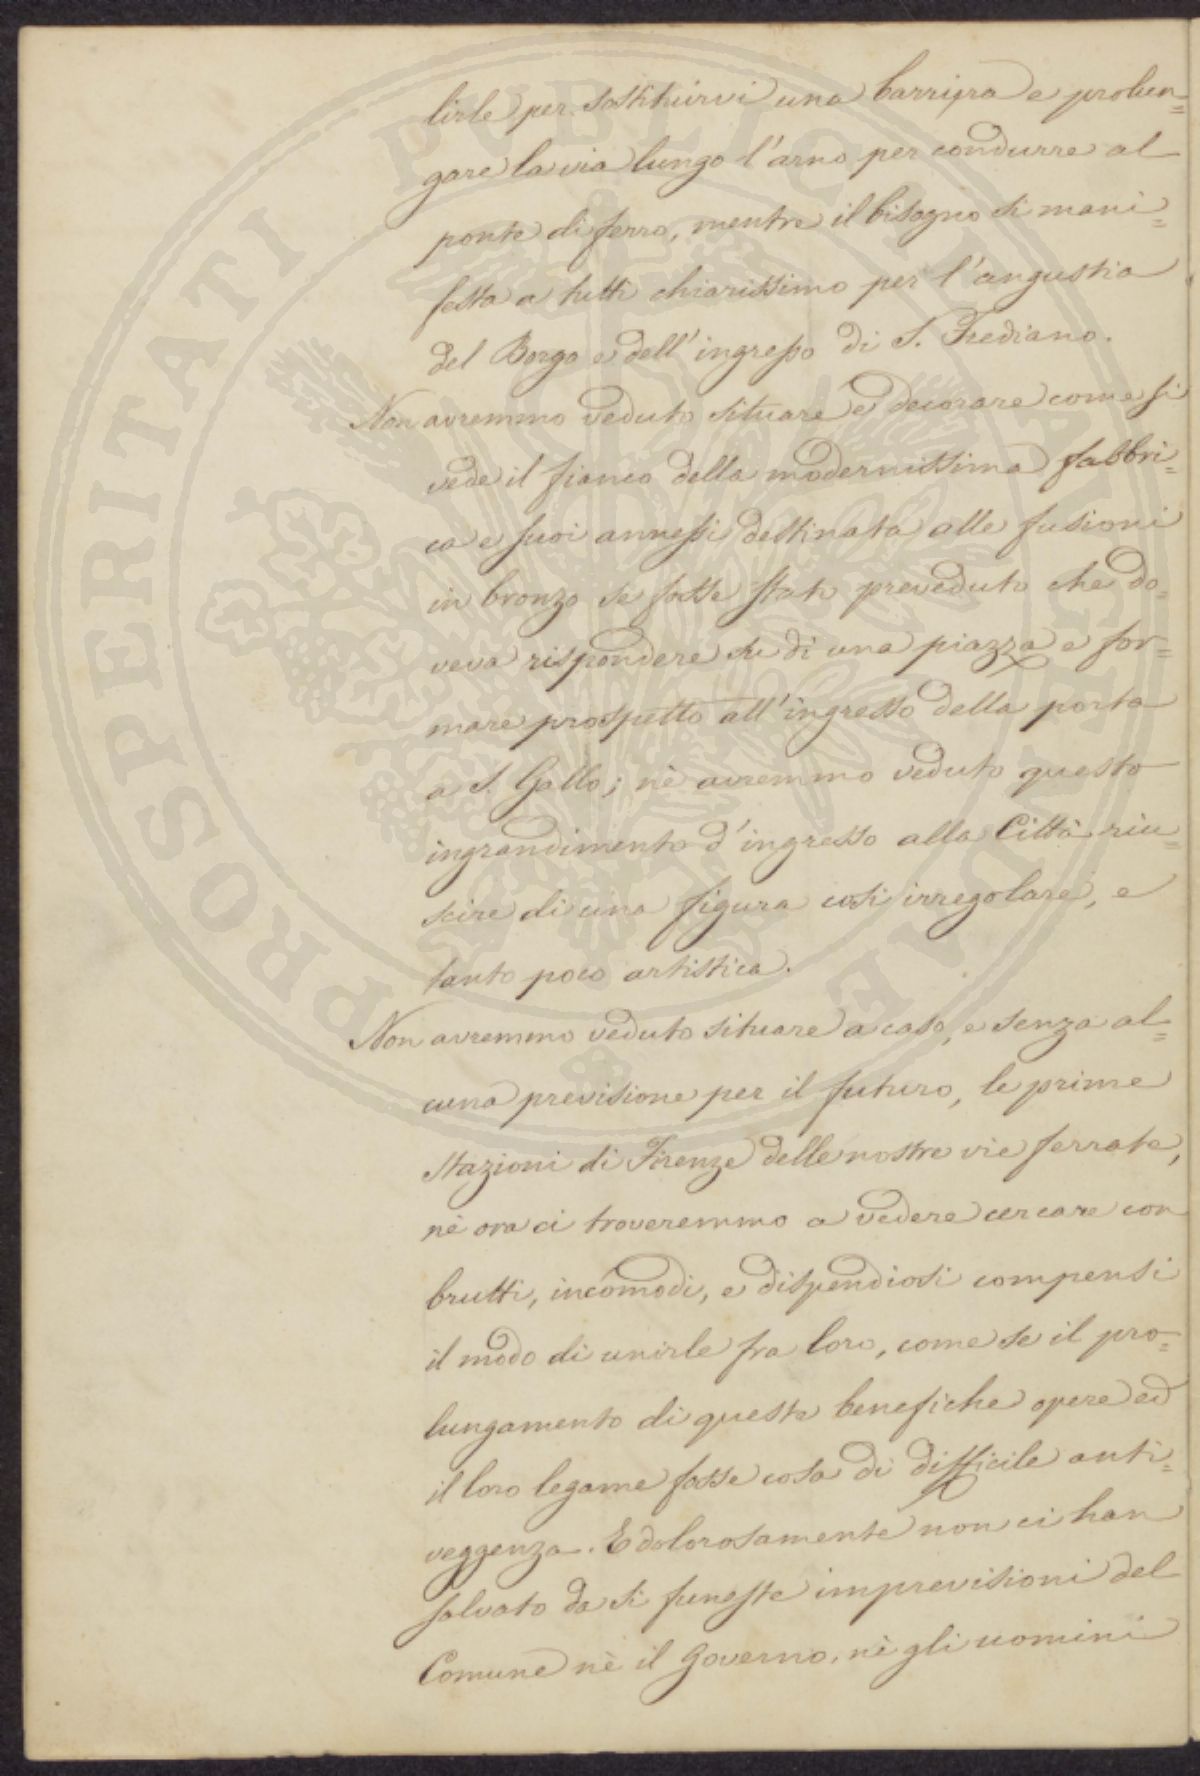 lirle per sostituirvi una barriera e prolun=
gare la via lungo l'arno per condurre al
ponte di ferro, mentre il bisogno si mani=
festa a tutti chiarissimo per l'angustia
del Borgo e dell'ingresso di S. Frediano.
Non avremmo veduto situare e decorare come si
vede il fianco della modernissima fabbri=
ca e suoi annessi destinata alle fusioni
in bronzo se fosse stato preveduto che do=
veva rispondere su di una piazza e for=
mare prospetto all'ingresso della porta
a S. Gallo; nè avremmo veduto questo
ingrandimento d'ingresso alla Città riu=
scire di una figura così irregolare, e
tanto poco artistica.
Non avremmo veduto situare a caso, e senza al=
cuna previsione per il futuro, le prime
Stazioni di Firenze delle nostre vie ferrate,
nè ora ci troveremmo a vedere cercare con
brutti, incomodi, e dispendiosi compensi
il modo di unirle fra loro, come se il pro=
lungamento di queste benefiche opere ed
il loro legame fosse cosa di difficile anti=
veggenza. E dolorosamente non ci han
salvato da sì funeste imprevisioni del
Comune nè il Governo, nè gli uomini
PROSPERITATI PUBLICAE AUGENDAE